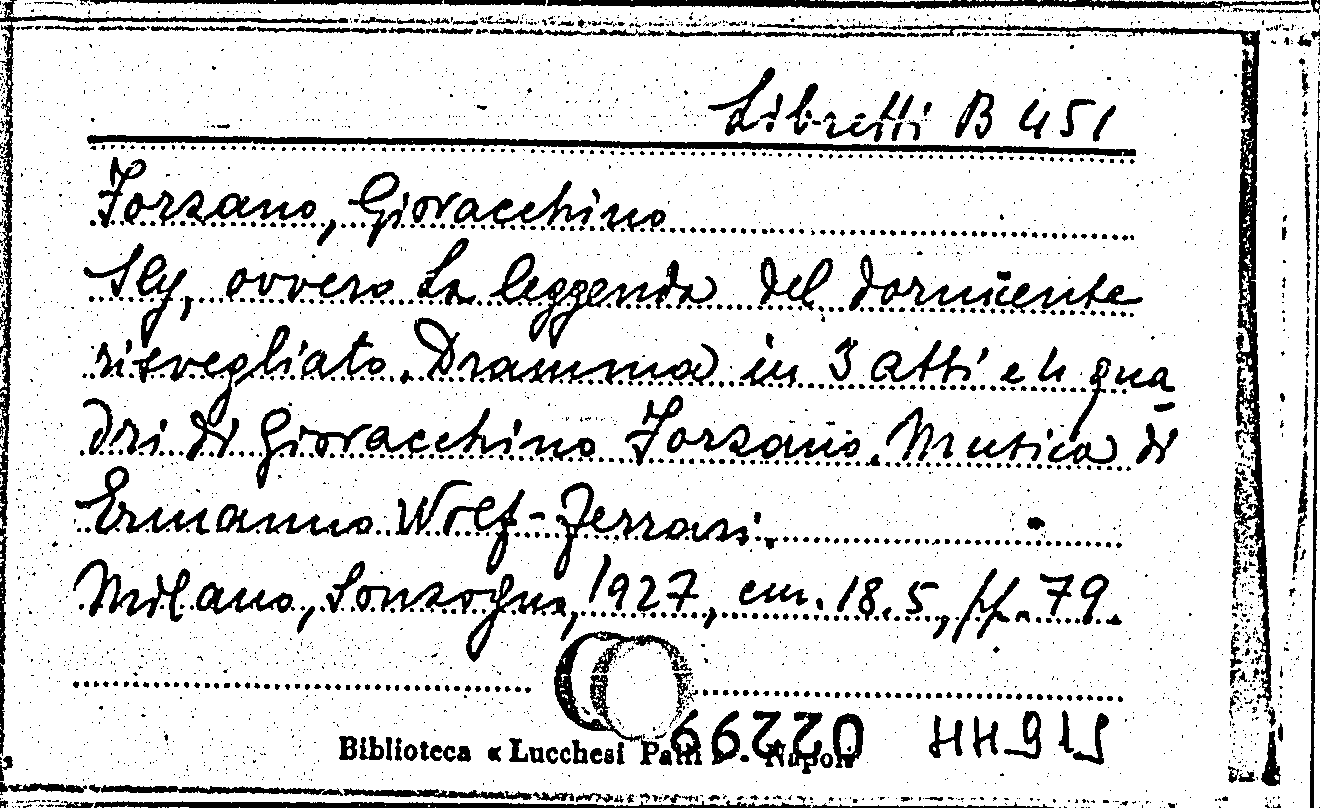 Libretti B 451
Forzano, Giovacchino
Sly, ovvero La leggenda del dormiente
risvegliato. Dramma in 3 atti e 4 qua-
dri di Giovacchino Forzano. Musica di
Ermanno Wolf-Ferrari.
Milano, Sonzogno, 1927, cm. 18.5, pp. 79.
Biblioteca « Lucchesi Palli » - Napoli